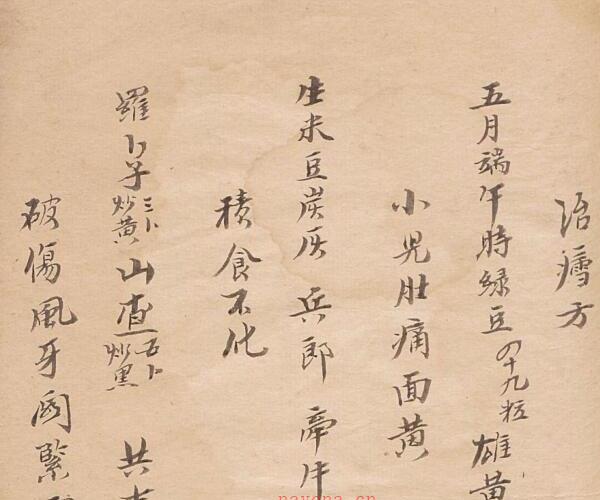 治瘧方
五月端午時绿豆四十九粒 雄黄
小児肚痛面黄
生米豆炭灰 兵郎 牽牛
積食不化
羅卜子炒黄三卜 山查炒黑五卜 共
破傷風牙関緊